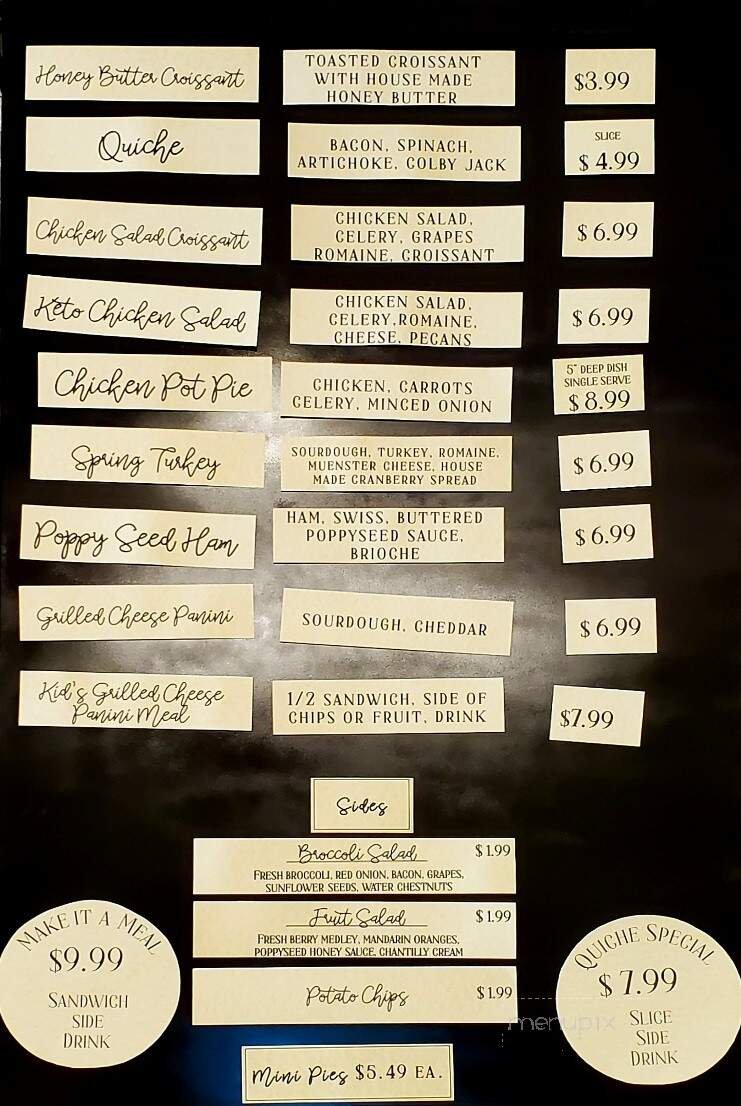 Honey Butter Croissant
TOASTED CROISSANT
WITH HOUSE MADE
HONEY BUTTER
$3.99
Quiche
BACON, SPINACH,
ARTICHOKE, COLBY JACK
SLICE
$ 4.99
Chicken Salad Croissant
CHICKEN SALAD,
CELERY, GRAPES
ROMAINE, CROISSANT
$ 6.99
Keto Chicken Salad
CHICKEN SALAD,
CELERY,ROMAINE,
CHEESE, PECANS
$ 6.99
Chicken Pot Pie
CHICKEN, CARROTS
CELERY, MINCED ONION
5" DEEP DISH
SINGLE SERVE
$ 8.99
Spring Turkey
SOURDOUGH, TURKEY, ROMAINE,
MUENSTER CHEESE, HOUSE
MADE CRANBERRY SPREAD
$ 6.99
Poppy Seed Ham
HAM, SWISS, BUTTERED
POPPYSEED SAUCE,
BRIOCHE
$ 6.99
Grilled Cheese Panini
SOURDOUGH, CHEDDAR
$ 6.99
Kid's Grilled Cheese
Panini Meal
1/2 SANDWICH, SIDE OF
CHIPS OR FRUIT, DRINK
$7.99
Sides
Broccoli Salad $ 1.99
FRESH BROCCOLI, RED ONION, BACON, GRAPES,
SUNFLOWER SEEDS, WATER CHESTNUTS
Fruit Salad $ 1.99
FRESH BERRY MEDLEY, MANDARIN ORANGES,
POPPYSEED HONEY SAUCE, CHANTILLY CREAM
Potato Chips $ 1.99
MAKE IT A MEAL
$9.99
SANDWICH
SIDE
DRINK
QUICHE SPECIAL
$ 7.99
SLICE
SIDE
DRINK
menupix
Mini Pies $5.49 EA.